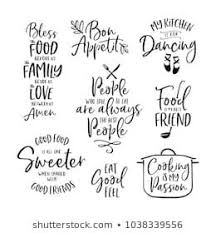 Bless
FOOD
BEFORE US
THE
FAMILY
BESIDE US
LOVE
BETWEEN US
Amen
Bon
Appetit
MY KITCHEN
IS FOR
Dancing
PEOPLE
WHO LOVE TO EAT
are always
THE BEST
People
Food
IS MY BEST
FRIEND
GOOD FOOD
IS ALL THE
Sweeter
WHEN SHARED
WITH
GOOD FRIENDS
EAT
GOOD
FEEL
Cooking
IS MY
Passion
www.shutterstock.com · 1038339556